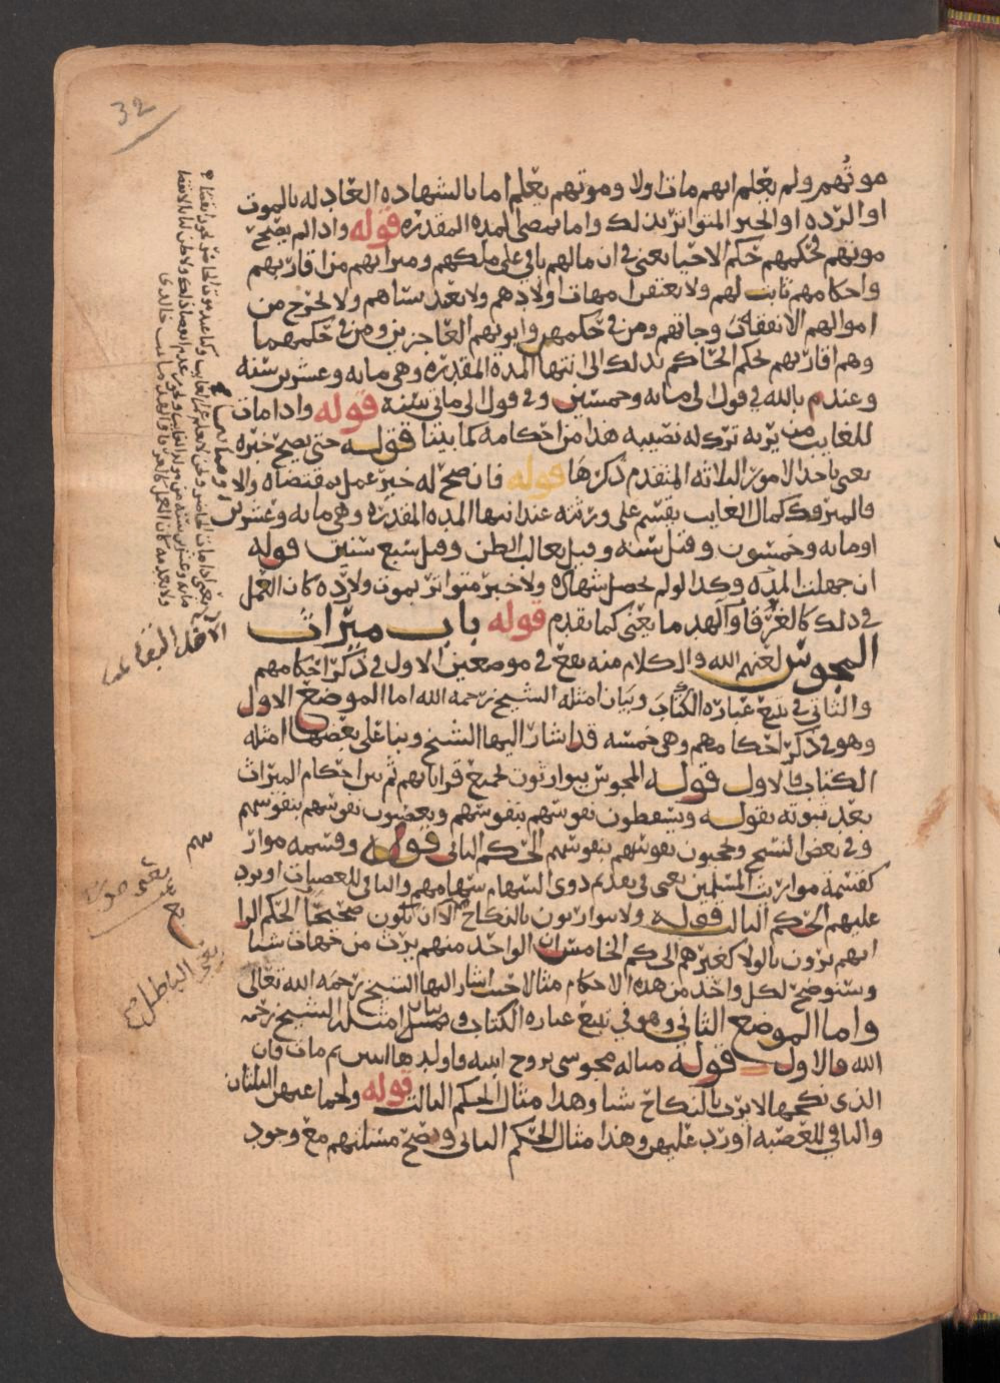 32
موتهم ولم يعلم ايهم مات اولا وموتهم يعلم اما بالشهاده العادله بالموت
او الرده او الخبر المتواتر بذلك واما بمضي المده المقدره قوله واذا لم يصح
موتهم فحكمهم حكم الاحيا يعني في ان مالهم باقي على ملكهم وميراثهم من اقاربهم
واحكامهم ثابت لهم ولا يعتق امهات اولادهم ولا يعتد نساهم ولا يخرج من
اموالهم الا نفقه زوجاتهم ومن في حكمهن وابويهم العاجزين ومن في حكمهما
وهم اقاربهم لحكم الحاكم بذلك الى انتها المده المقدره وهي مايه وعشرين سنه
وعند م بالله في قول الى مايه وخمسين وفي قول الى مأتي سنة قوله واذا مات
للغايب من يرثه ترك له نصيبه هذا من احكامه كما بينا قوله حتى يصح خبره
يعني باحد الامور الثلاثه المتقدم ذكرها قوله فان صح له خبر عمل بمقتضاه والا
فالمتروك كمال الغايب يقسم على ورثته عند انتها المده المقدره وهي مايه وعشرين
او مايه وخمسون وقيل سنه وقيل بغالب الظن وقيل سبع سنين قوله
ان جهلت المده وكذا لو لم يحصل شهاده ولا خبر متواتر بموت ولا رده كان العمل
في ذلك كالغرقا والهدما يعني كما تقدم قوله باب ميراث
المجوس لعنهم الله والكلام منه يقع في موضعين الاول في ذكر احكامهم
والثاني في تتبع عبارة الكتاب وبيان امثله الشيخ رحمه الله اما الموضع الاول
وهو في ذكر احكامهم وهي خمسه قد اشار اليها الشيخ وبنا على بعضها امثله
الكتاب فالاول قوله المجوس يتوارثون بجميع قراباتهم ثم بين احكام الميراث
بعد ثبوته بقوله ويسقطون نفوسهم بنفوسهم ويعصبون نفوسهم بنفوسهم
وفي بعض النسخ ويحجبون نفوسهم بنفوسهم الحكم الثاني قوله وقسمه مواريثهم
كقسمة مواريث المسلمين يعني في تقديم ذوي السهام سهامهم والباقي للعصبات او يرد
عليهم الحكم الثالث قوله ولا يتوارثون بالنكاح الا ان يكون صحيحا الحكم الرا
انهم يرثون بالولا كغيرهم الحكم الخامس ان الواحد منهم يرث من جهات شتا
وسنوضح لكل واحد من هذه الاحكام مثالا حيث اشار اليها الشيخ رحمه الله تعالى
واما الموضع الثاني وهو في تتبع عباره الكتاب وامثله الشيخ رحمه
الله فالاول قوله مثاله مجوسي تزوج ابنته فاولدها ابنتين ثم مات فان
الذي نكحها لا يرث بالنكاح شيا وهذا مثال الحكم الثالث قوله ولجماعتهن الثلثان
والباقي للعصبه او رد عليهن وهذا مثال الحكم الثاني وتصح مسئلتهم مع وجود